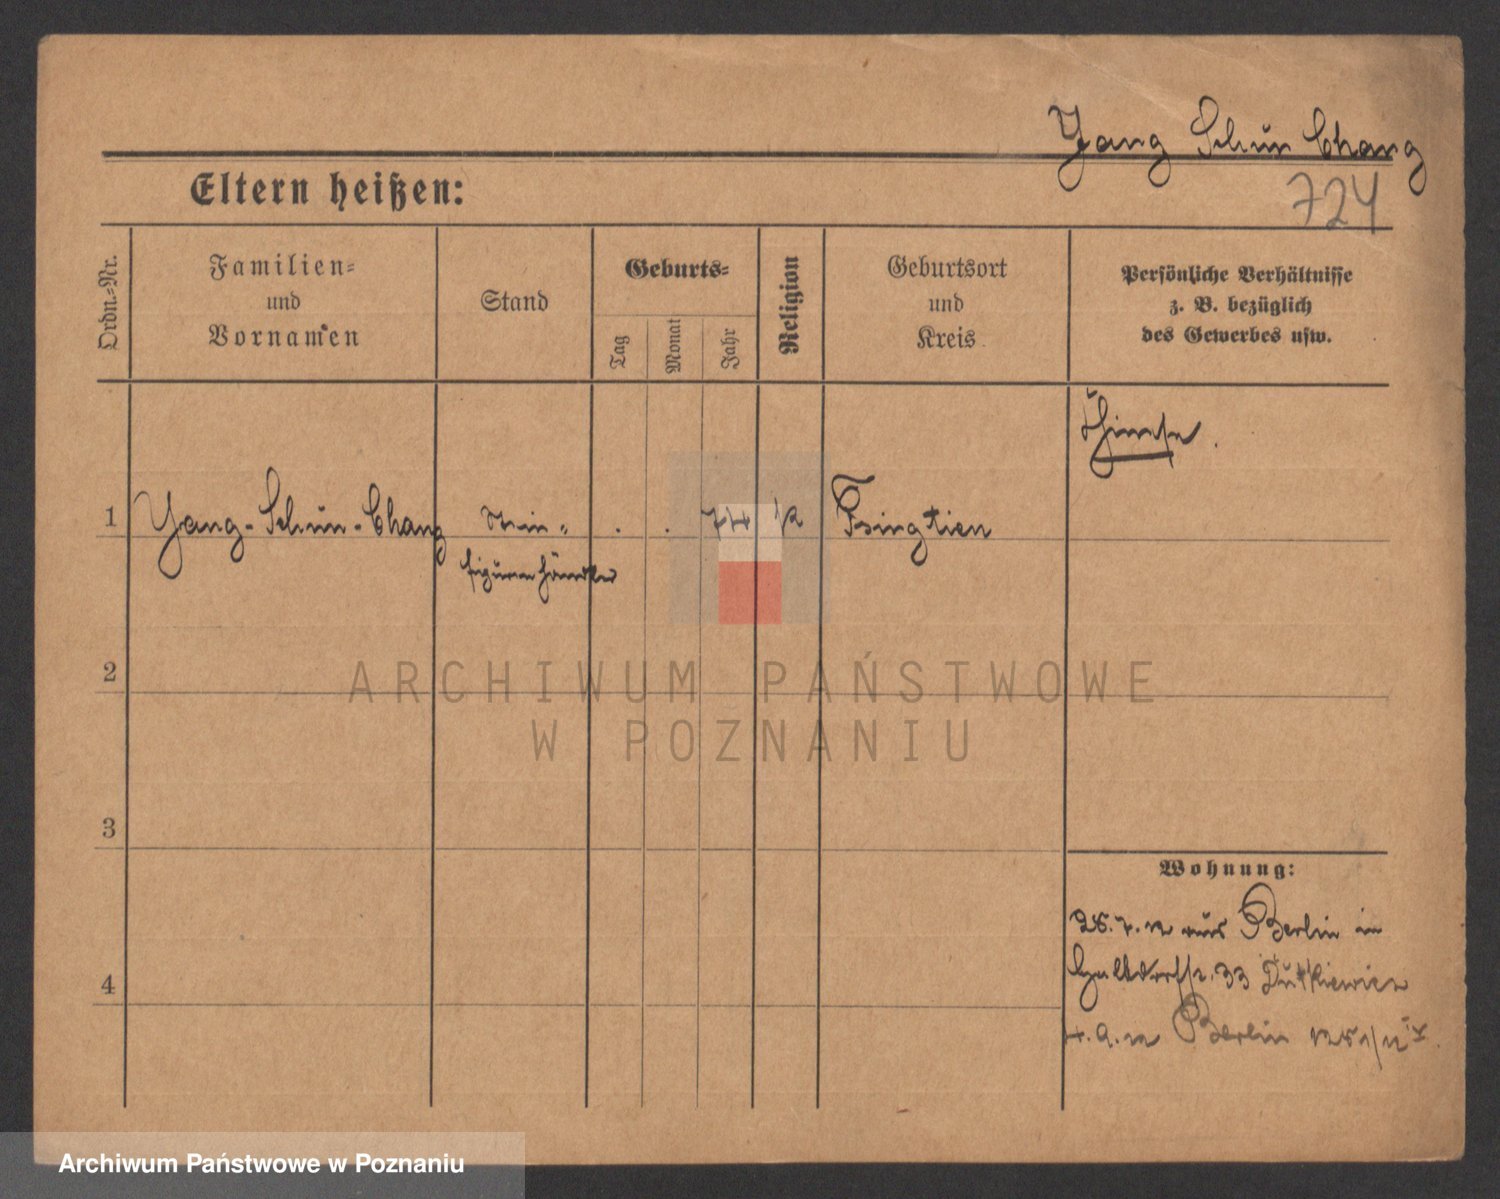 Yang Schun Chang
724
Eltern heißen:
Ordn.-Nr.
Familien-
und
Vornamen
Stand
Geburts-
Tag
Monat
Jahr
Religion
Geburtsort
und
Kreis
Persönliche Verhältnisse
z. B. bezüglich
des Gewerbes usw.
Chinese.
1
Yang-Schun-Chang
Stein-
figurenhändler
. . 74
Tsingtien
2
3
4
Wohnung:
aus Berlin in
33 Dutkiewicz
Berlin
ARCHIWUM PAŃSTWOWE
W POZNANIU
Archiwum Państwowe w Poznaniu